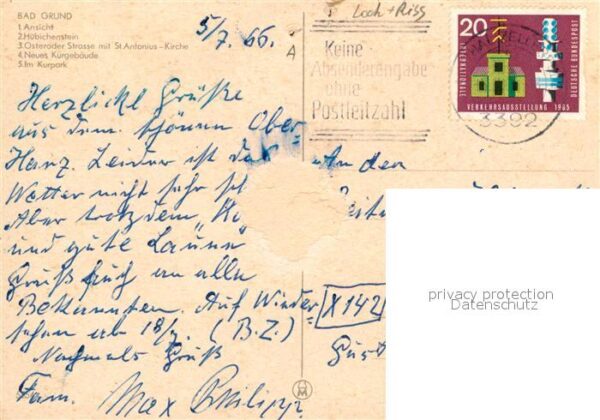 BAD GRUND
1.Ansicht
2.Hübichenstein
3.Osteroder Strasse mit St Antonius-Kirche
4.Neues Kurgebäude
5.Im Kurpark
5/7. 66.
Loch + Riss
A
Keine
Absenderangabe
ohne
Postleitzahl
20
DEUTSCHE BUNDESPOST
VERKEHRSAUSSTELLUNG 1965
3392
Herzliche Grüße
aus dem schönen Ober-
Harz. Leider ist das
Wetter nicht sehr
Aber trotzdem
und gute Laune
Gruß Euch an alle
Bekannten. Auf Wieder-
sehen ab 18/7. (B.Z.)
Nochmals Gruß
Fam. Max Philipp
An den
X142
privacy protection
Datenschutz